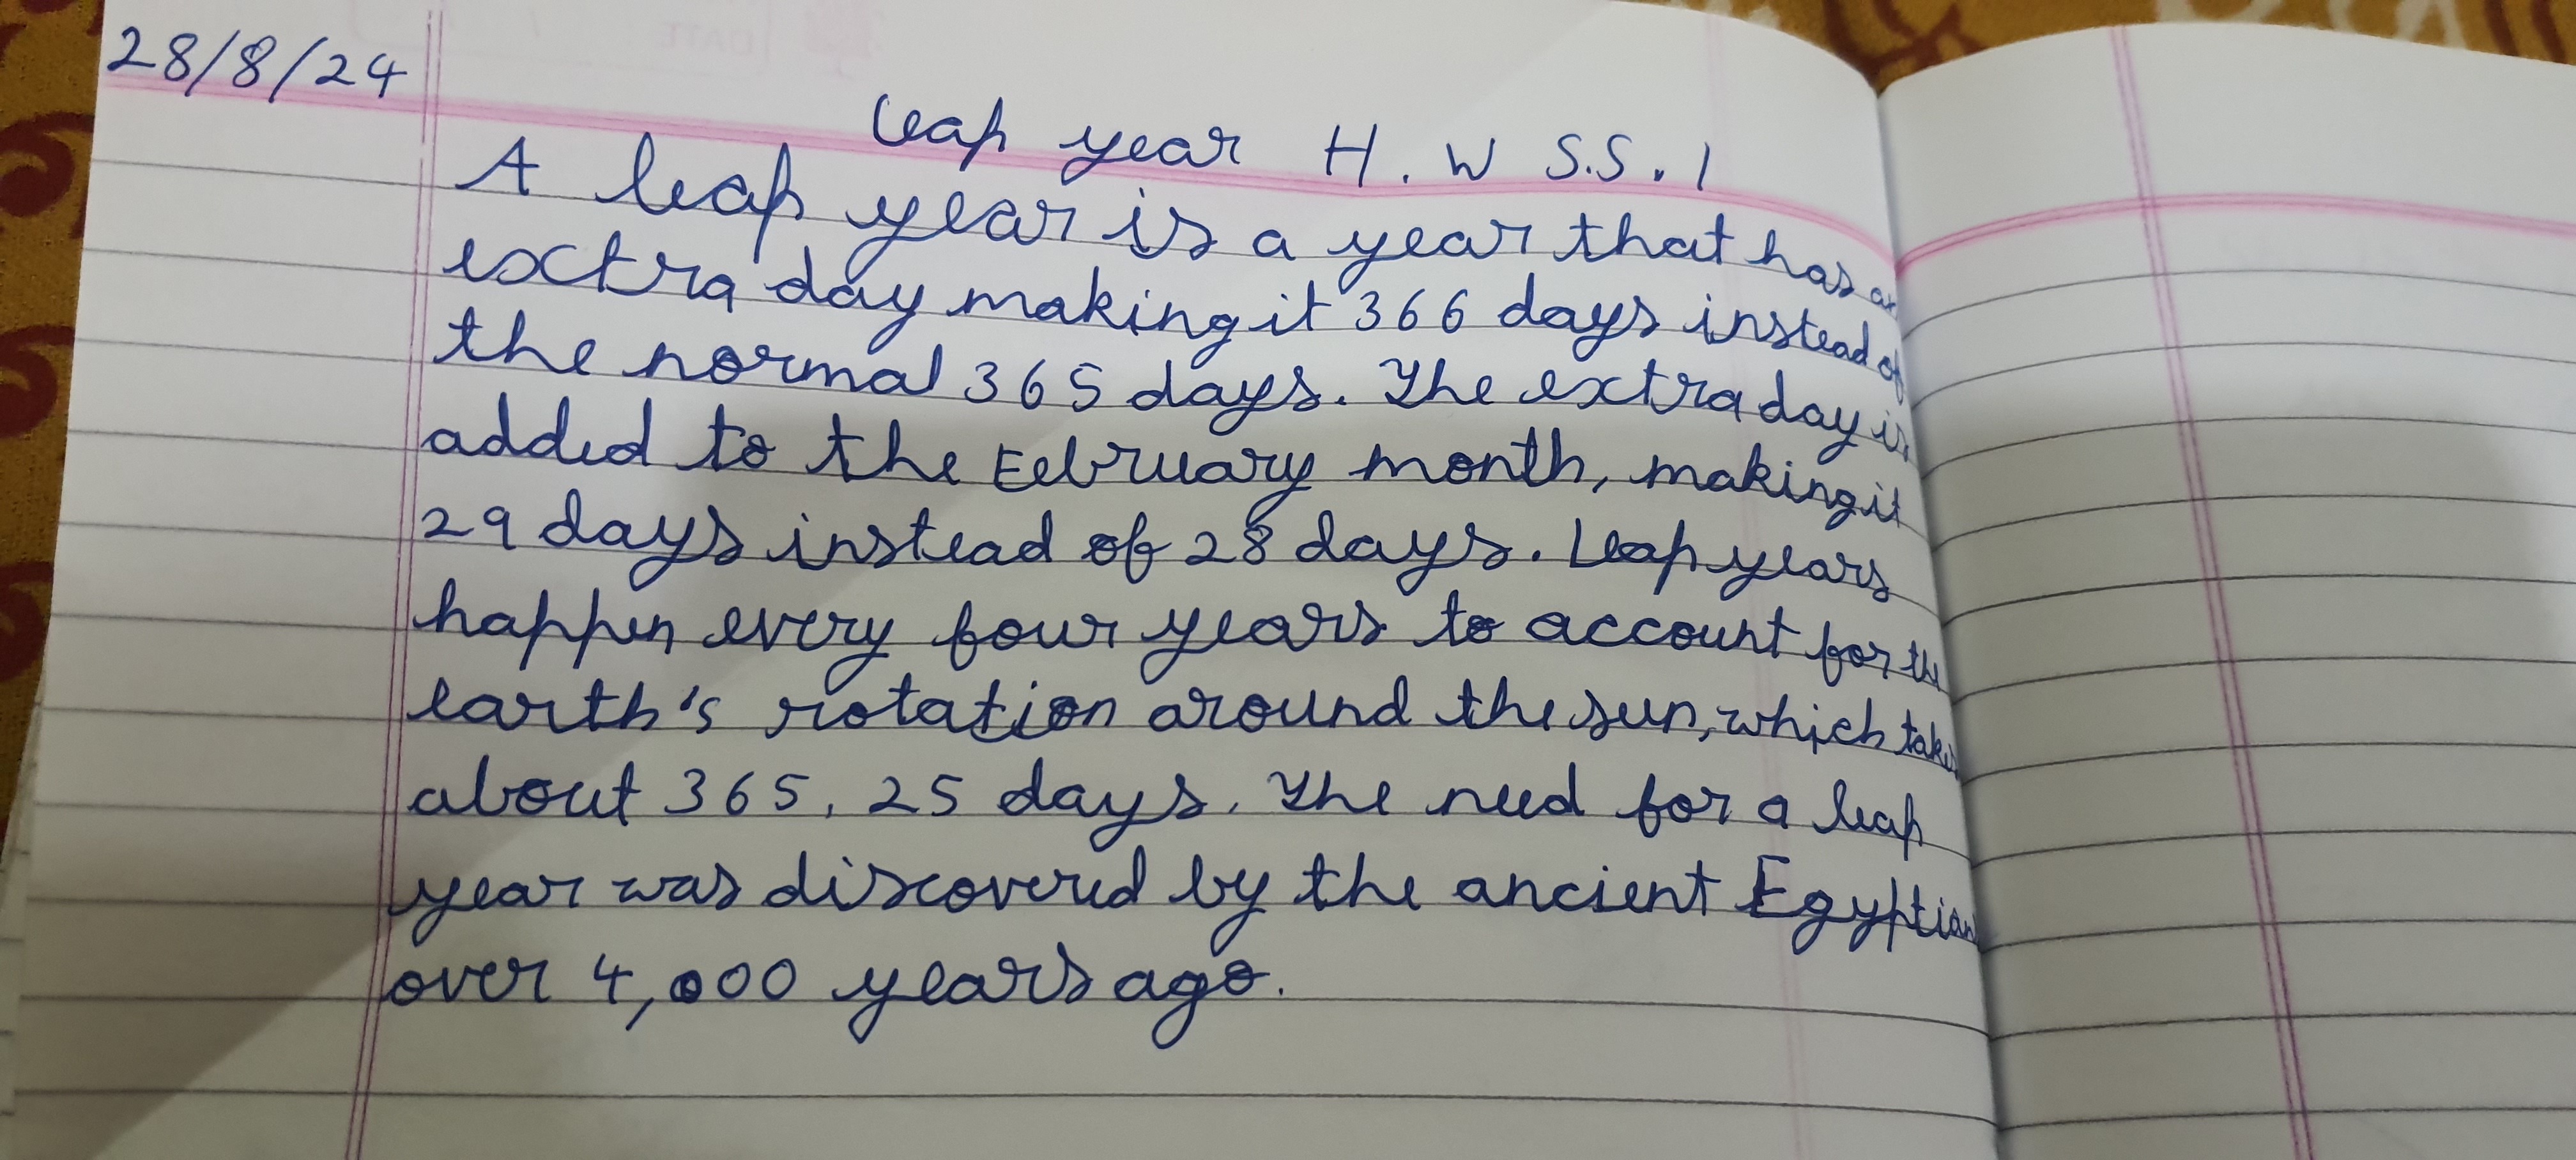 28/8/24
Leap year H.W S.S.1
A leap year is a year that has an
exctra day making it 366 days instead of
the normal 365 days. The extra day is
added to the Eebruary month, making it
29 days instead of 28 days. Leap years
happen every four years to account for the
earth's rotation around the sun, which takes
about 365.25 days. The need for a leap
year was discovered by the ancient Egyptian
over 4,000 years ago.